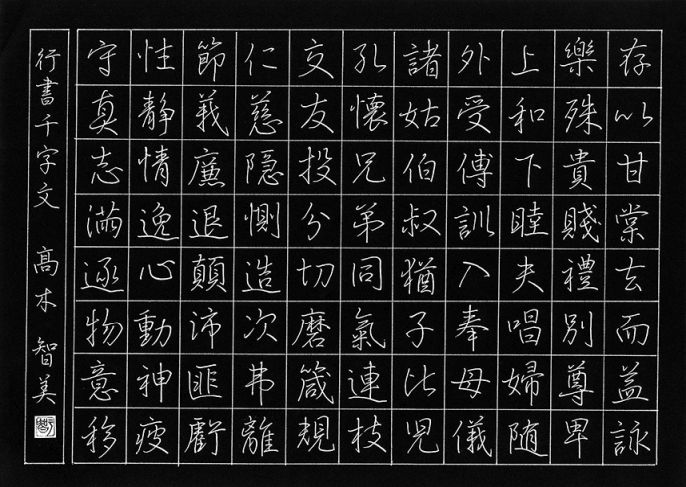 存以甘棠去而益詠
樂殊貴賤禮別尊卑
上和下睦夫唱婦随
外受傅訓入奉母儀
諸姑伯叔猶子比児
孔懐兄弟同氣連枝
交友投分切磨箴規
仁慈隠惻造次弗離
節義廉退顛沛匪虧
性静情逸心動神疲
守真志満逐物意移
行書千字文 高木 智美